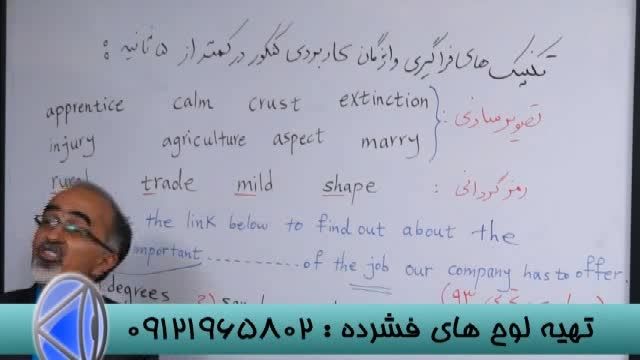 تکنیک های فراگیری واژگان کاربردی کنکور در کمتر از ۵ ثانیه :
تصویرسازی : apprentice calm crust extinction
injury agriculture aspect marry
رمزگردانی : rural trade mild shape
the link below to find out about the
important .................. of the job our company has to offer.
degrees
تهیه لوح های فشرده : ۰۹۱۲۱۹۶۵۸۰۲